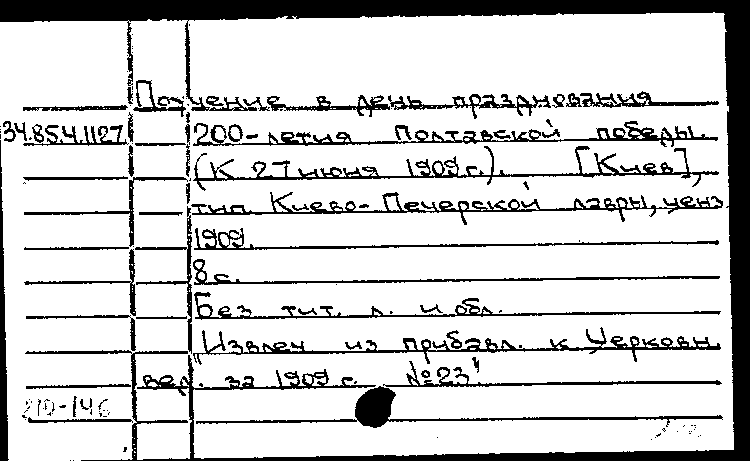 Поучение в день празднования
34.85.4.1127 200-летия Полтавской победы.
(К 27 июня 1909 г.). [Киев],
тип. Киево-Печерской лавры, ценз.
1909.
8 с.
Без тит. л. и обл.
"Извлеч. из прибавл. к Церковн.
вед. за 1909 г. №23"
210-146